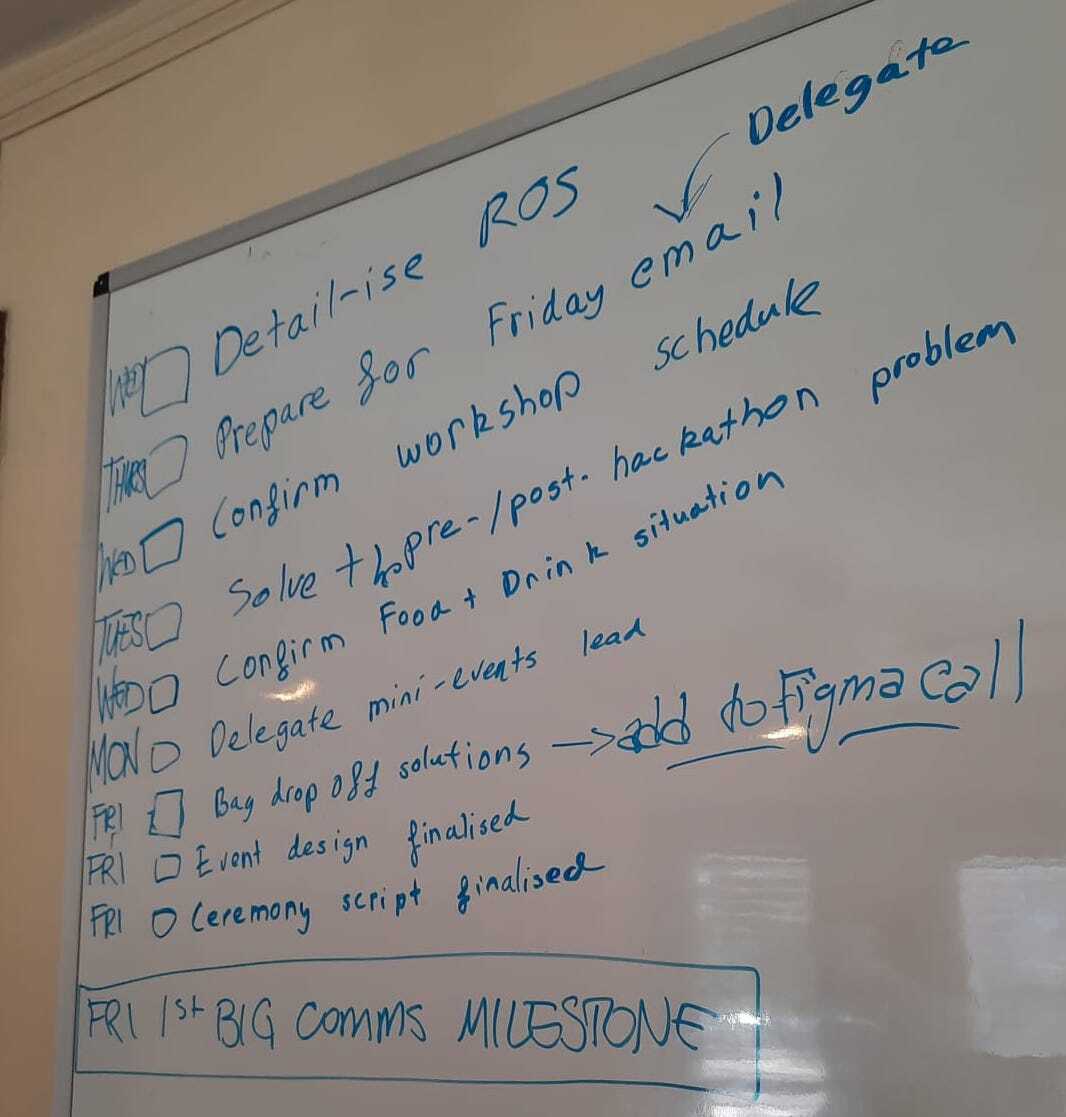 Delegate
WED Detail-ise ROS
THURS Prepare for Friday email
WED Confirm workshop schedule
TUES Solve the pre-/post-hackathon problem
WED Confirm Food + Drink situation
MON Delegate mini-events lead
FRI Bag drop off solutions → add to Figma call
FRI Event design finalised
FRI Ceremony script finalised
FRI 1st BIG COMMS MILESTONE